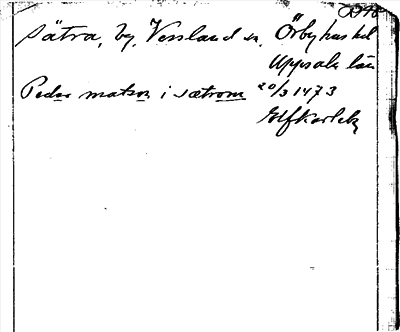 Sätra, by, Vessland sn, Örbyhus hd
Uppsala län
Peder matson i sætrom 20/3 1473
Elfkarleby